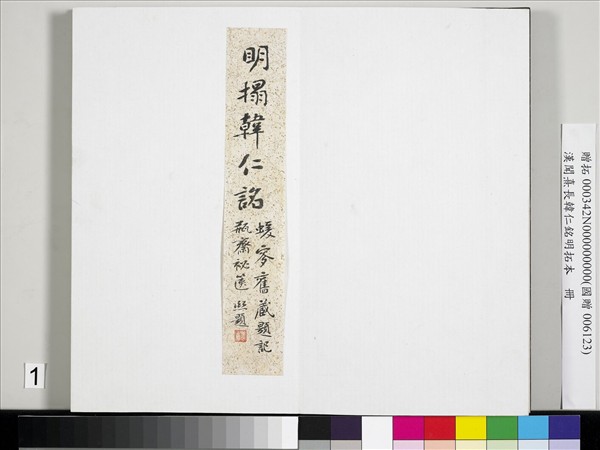 明搨韓仁銘
蝯叟舊藏題記
瓶齋祕笈 熙題
贈拓 000342N000000000(國贈 006123)
漢聞憙長韓仁銘明拓本 冊
1